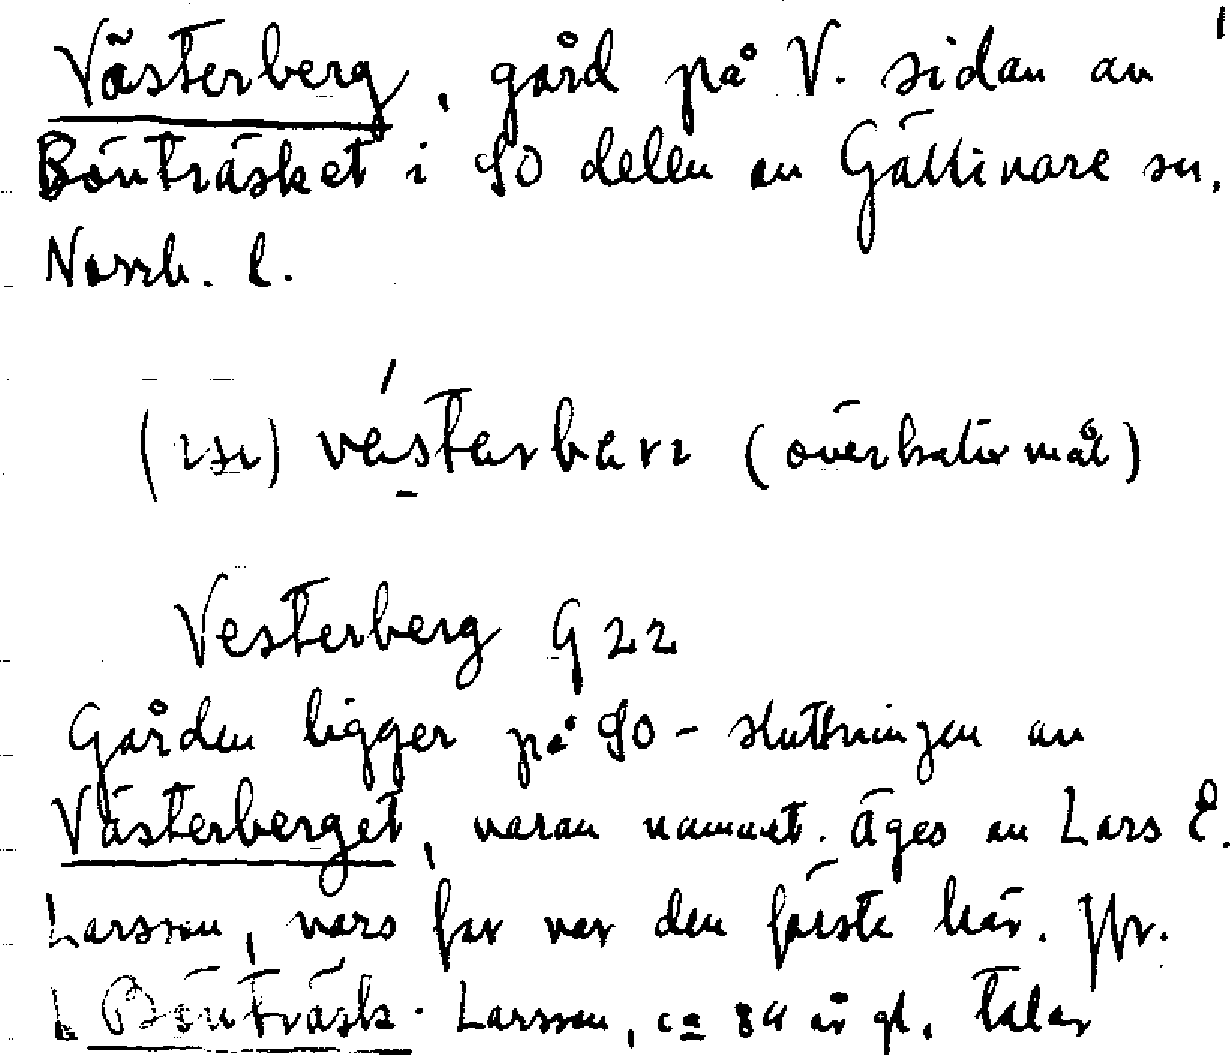 Västerberg, gård på V. sidan av
Bönträsket i SO delen av Gällivare sn,
Norrb. l.
västerbärj (överkalixmål)
Vesterberg G 22
Gården ligger på SO-sluttningen av
Västerberget, varav namnet. Äges av Lars E.
Larsson, vars far var den förste här. Jfr.
Bönträsk. Larsson, ca 84 år gl. talar